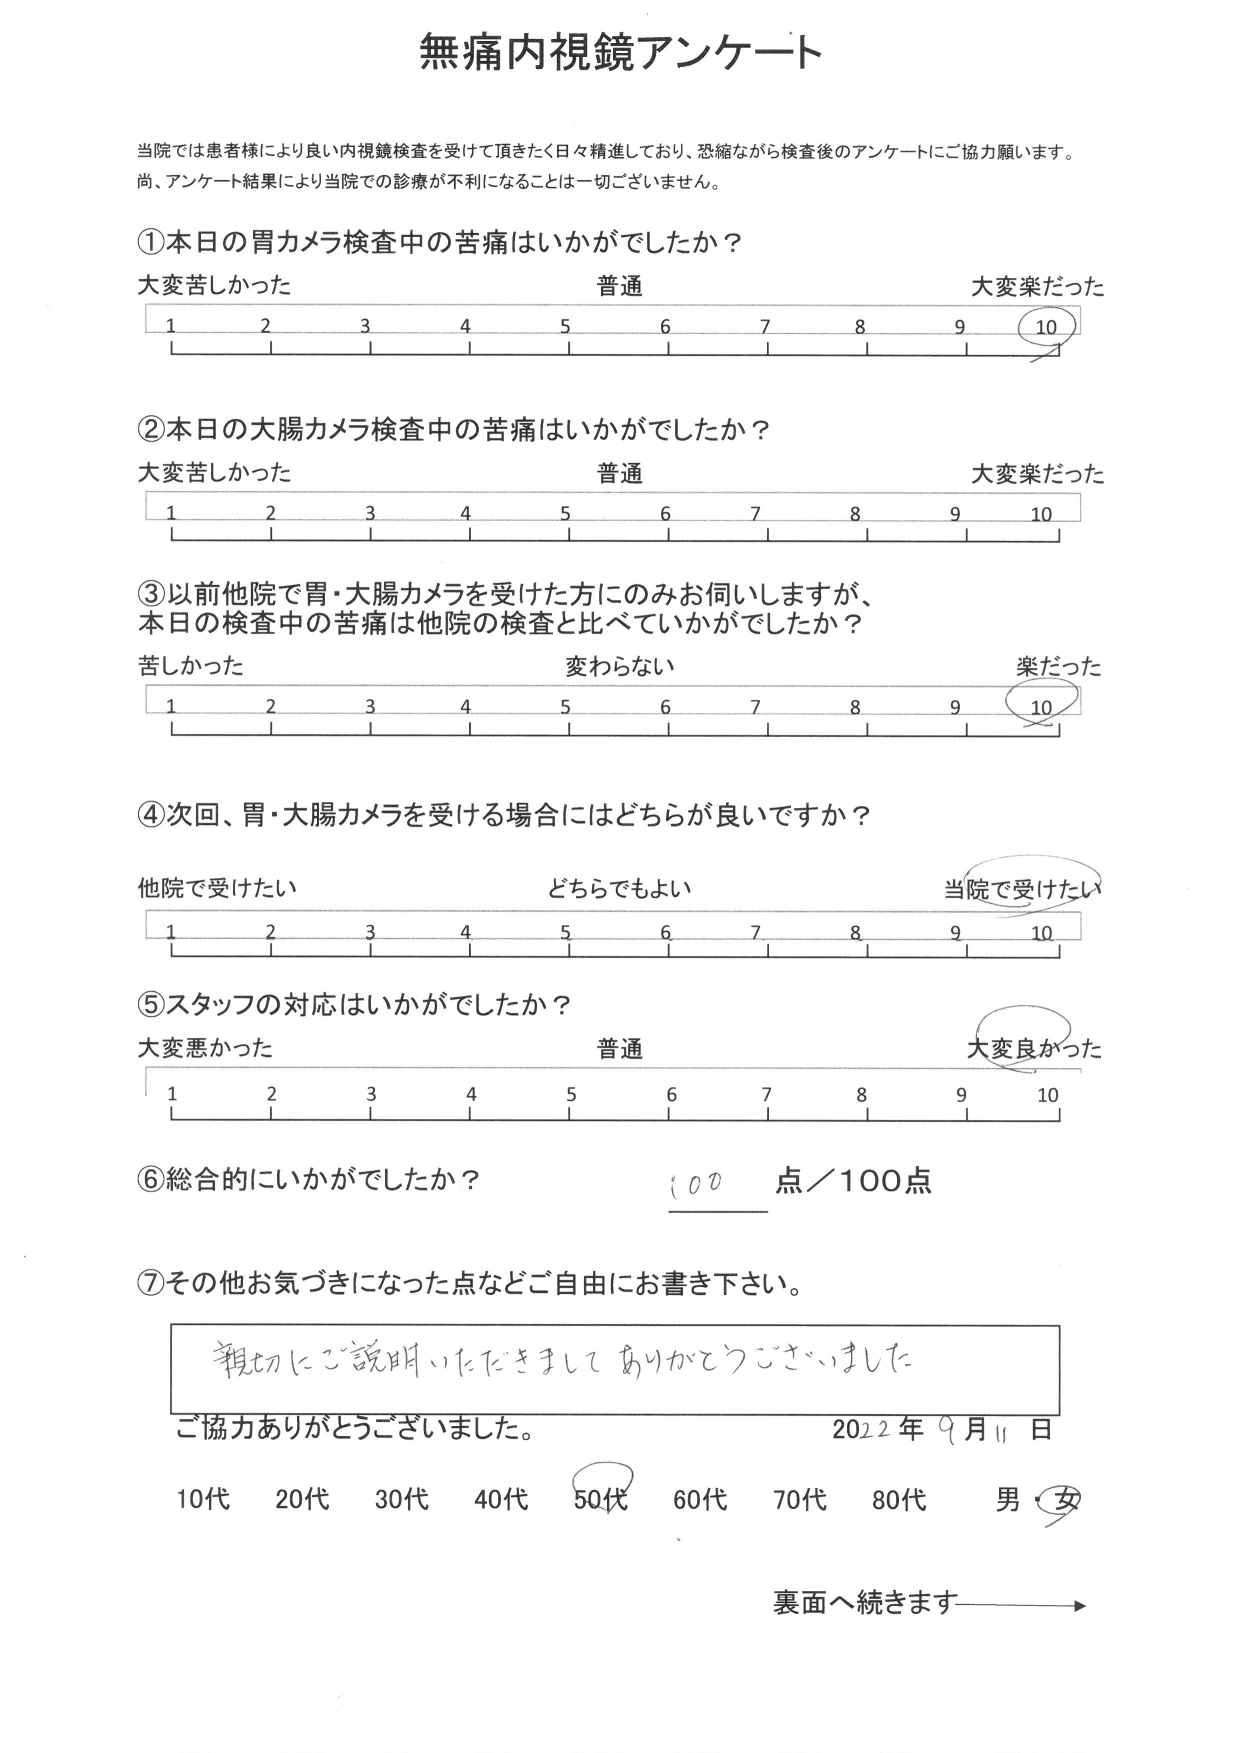 無痛内視鏡アンケート
当院では患者様により良い内視鏡検査を受けて頂きたく日々精進しており、恐縮ながら検査後のアンケートにご協力願います。
尚、アンケート結果により当院での診療が不利になることは一切ございません。
①本日の胃カメラ検査中の苦痛はいかがでしたか？
大変苦しかった 普通 大変楽だった
1 2 3 4 5 6 7 8 9 10
②本日の大腸カメラ検査中の苦痛はいかがでしたか？
大変苦しかった 普通 大変楽だった
1 2 3 4 5 6 7 8 9 10
③以前他院で胃・大腸カメラを受けた方にのみお伺いしますが、
本日の検査中の苦痛は他院の検査と比べていかがでしたか？
苦しかった 変わらない 楽だった
1 2 3 4 5 6 7 8 9 10
④次回、胃・大腸カメラを受ける場合にはどちらが良いですか？
他院で受けたい どちらでもよい 当院で受けたい
1 2 3 4 5 6 7 8 9 10
⑤スタッフの対応はいかがでしたか？
大変悪かった 普通 大変良かった
1 2 3 4 5 6 7 8 9 10
⑥総合的にいかがでしたか？ 100 点／100点
⑦その他お気づきになった点などご自由にお書き下さい。
親切にご説明いただきまして ありがとうございました
ご協力ありがとうございました。 2022年 9月11日
10代 20代 30代 40代 50代 60代 70代 80代 男・女
裏面へ続きます